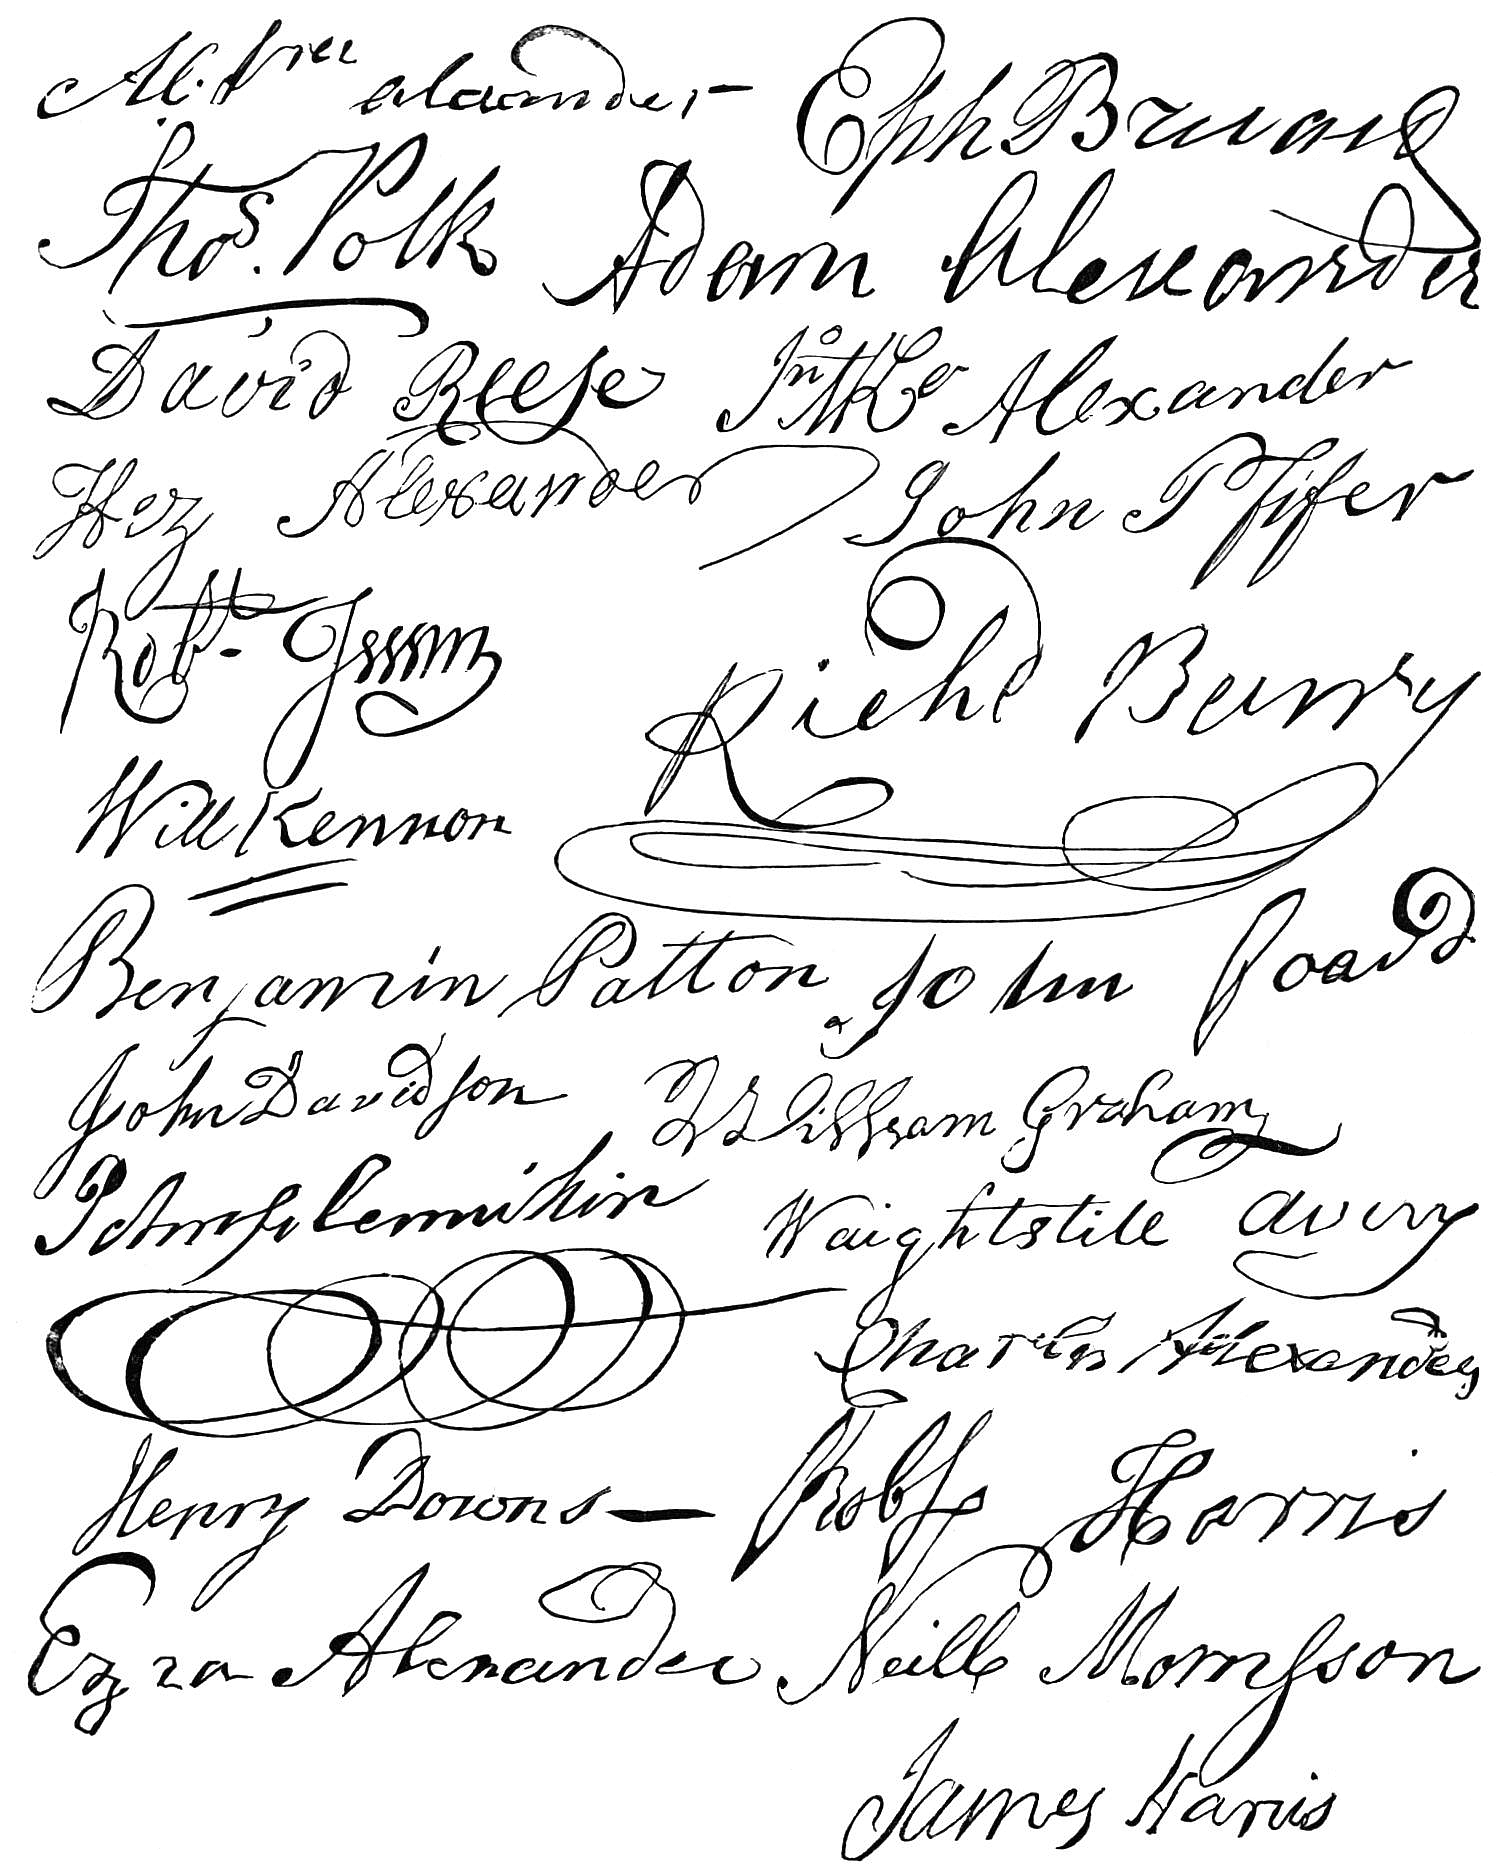 Abree alaander
Eph Brevard
Thos. Polk
Adam Alexander
David Reese
Jno McKr Alexander
Hez Alexander
John Pfifer
Robt. Irwin
Richd Barry
Will Kennon
Benjamin Patton
John foard
John Davidson
William Graham
Waightstill avery
Charles Alexander
Henry Downs
Robt Harris
Ezra Alexander
Neill Morrisson
James Harris